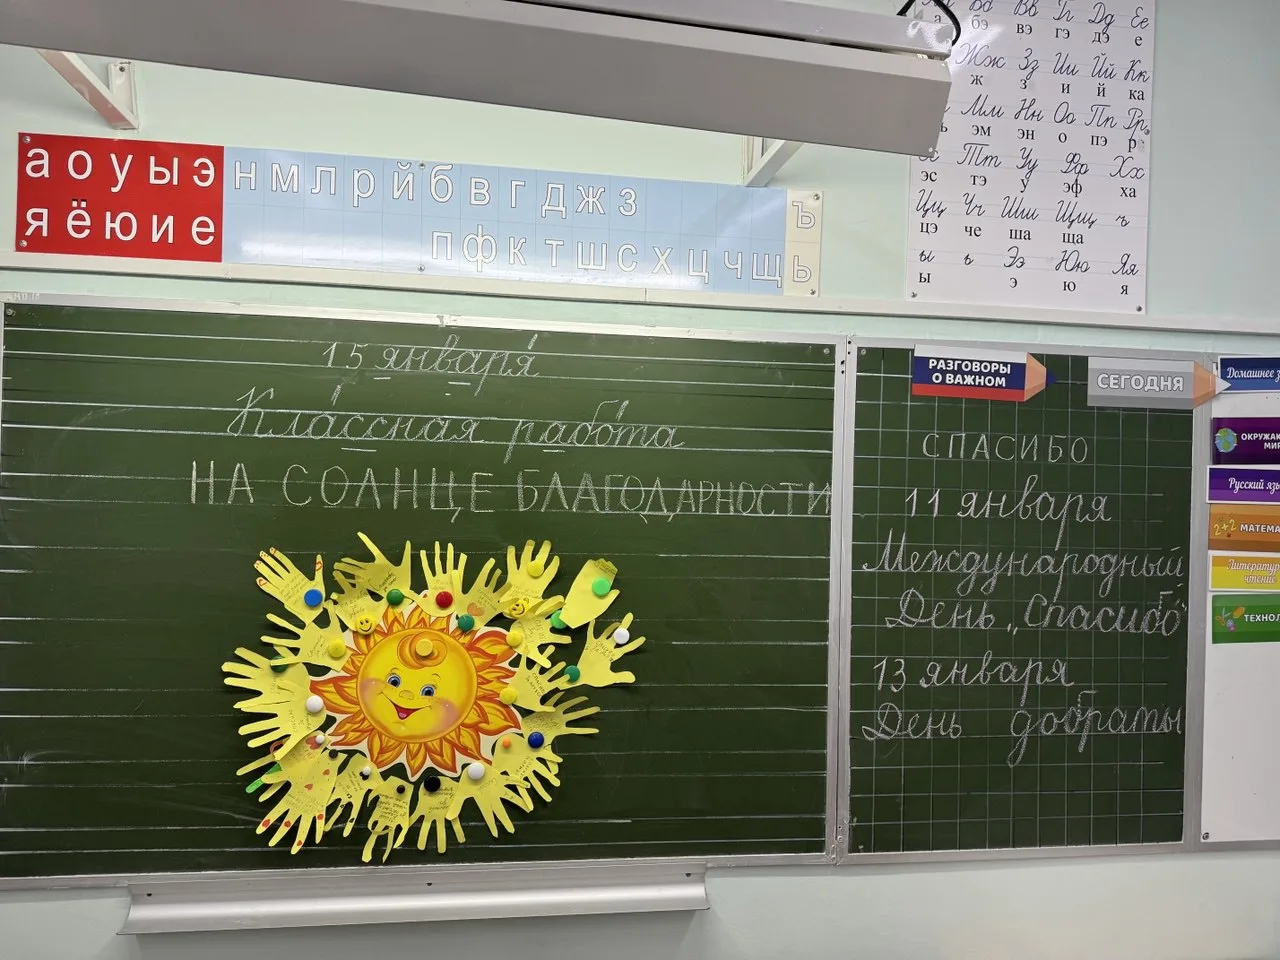 а о у ы э н м л р й б в г д ж з ъ
я ё ю и е п ф к т ш с х ц ч щ ь
бэ вэ гэ дэ е
Жж Зз Ии Йй Кк
ж з и й ка
Мм Нн Оо Пп Рр
эм эн о пэ р
Тт Уу Фф Хх
эс тэ у эф ха
Цц Чч Шш Щщ ъ
цэ че ша ща
ы ь Ээ Юю Яя
ы э ю я
15 января
Классная работа
НА СОЛНЦЕ БЛАГОДАРНОСТИ
РАЗГОВОРЫ
О ВАЖНОМ
СЕГОДНЯ
СПАСИБО
11 января
Международный
День „Спасибо"
13 января
День доброты
Домашнее з
ОКРУЖАЮ
МИР
Русский язы
2+2 МАТЕМА
Литератур
чтение
ТЕХНОЛ